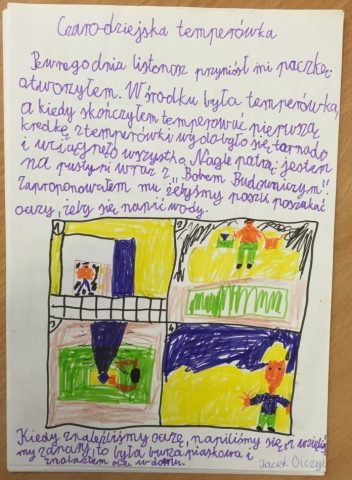 Czarodziejska temperówka
Pewnego dnia listonosz przyniósł mi paczkę
otworzyłem. W środku była temperówka,
a kiedy skończyłem temperować pierwszą
kredkę z temperówki wydobyło się tornado
i wciągnęło wszystko. Nagle patrzę jestem
na pustyni wraz z „Bobem Budowniczym".
Zaproponowałem mu żebyśmy poszli poszukać
oazy, żeby się napić wody.
1
2
3
4
Kiedy znaleźliśmy oazę, napiliśmy się, i wzięliś
my zapasy, to była burza piaskowa i
znalazłem się w domu.
Jacek